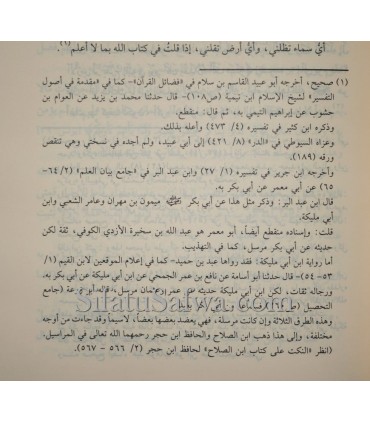 أيُّ سماء تظلني، وأيُّ أرض تقلني، إذا قلتُ في كتاب الله بما لا أعلم(١).
(١) صحيح، أخرجه أبو عبيد القاسم بن سلام في «فضائل القرآن»- كما في «مقدمة في أصول
التفسير» لشيخ الإسلام ابن تيمية (ص١٠٨)- قال حدثنا محمد بن يزيد عن العوام بن
حشوب عن إبراهيم التيمي به، ثم قال: منقطع.
وذكره ابن كثير في تفسيره (٤/ ٤٧٣) وأعله بذلك.
وعزاه السيوطي في «الدر» (٨/ ٤٢١) إلى أبي عبيد، ولم أجده في نسختي وهي تنتقص
ورقه (١٨٩).
وأخرجه ابن جرير في تفسيره (١/ ٢٧) وابن عبد البر في «جامع بيان العلم» (٢/ ٦٤-
٦٥) عن أبي معمر عن أبي بكر به.
قال ابن عبد البر: وذكر مثل هذا عن أبي بكر ميمون بن مهران وعامر الشعبي وابن
أبي مليكة.
قلت: وإسناده منقطع أيضاً، أبو معمر هو عبد الله بن سخبرة الأزدي الكوفي، ثقة لكن
حديثه عن أبي بكر مرسل، كما في التهذيب.
أما رواية ابن أبي مليكة: فقد رواها عبد بن حميد- كما في إعلام الموقعين لابن القيم (١/
٥٣- ٥٤)- قال حدثنا أبو أسامة عن نافع بن عمر الجمحي عن ابن أبي مليكة عن أبي بكر به.
ورجاله ثقات، لكن ابن أبي مليكة حديثه عن عمر وعثمان مرسل، قاله أبو زرعة (جامع
التحصيل (ص
SilatuSalwa.com
وهذه الطرق الثلاثة وإن كانت مرسلة، فهي يعضد بعضها بعضاً، لاسيما وقد جاءت من أوجه
مختلفة، وإلى هذا ذهب ابن الصلاح والحافظ ابن حجر رحمهما الله تعالى في المراسيل.
(انظر «النكت على كتاب ابن الصلاح» لحافظ ابن حجر (٢/ ٥٦٦ - ٥٦٧).